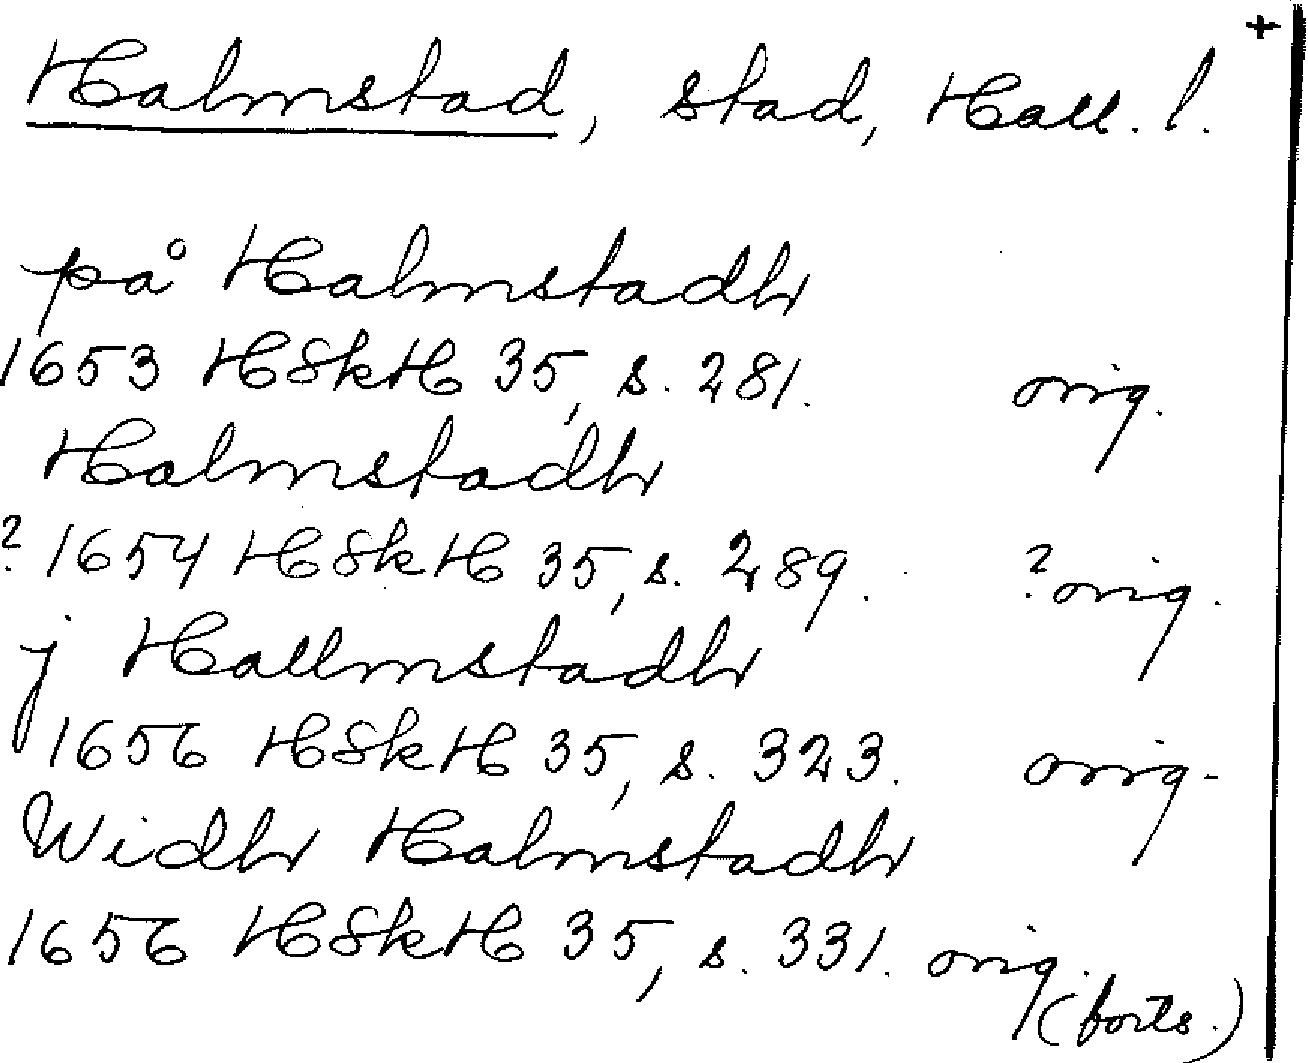 +
Halmstad, stad, Hall. l.
på Halmstadh
1653 HSkH 35, s. 281. orig.
Halmstadh
? 1654 HSkH 35, s. 289. ? orig.
j Hallmstadh
1656 HSkH 35, s. 323. orig.
Widh Halmstadh
1656 HSkH 35, s. 331. orig.
(forts.)